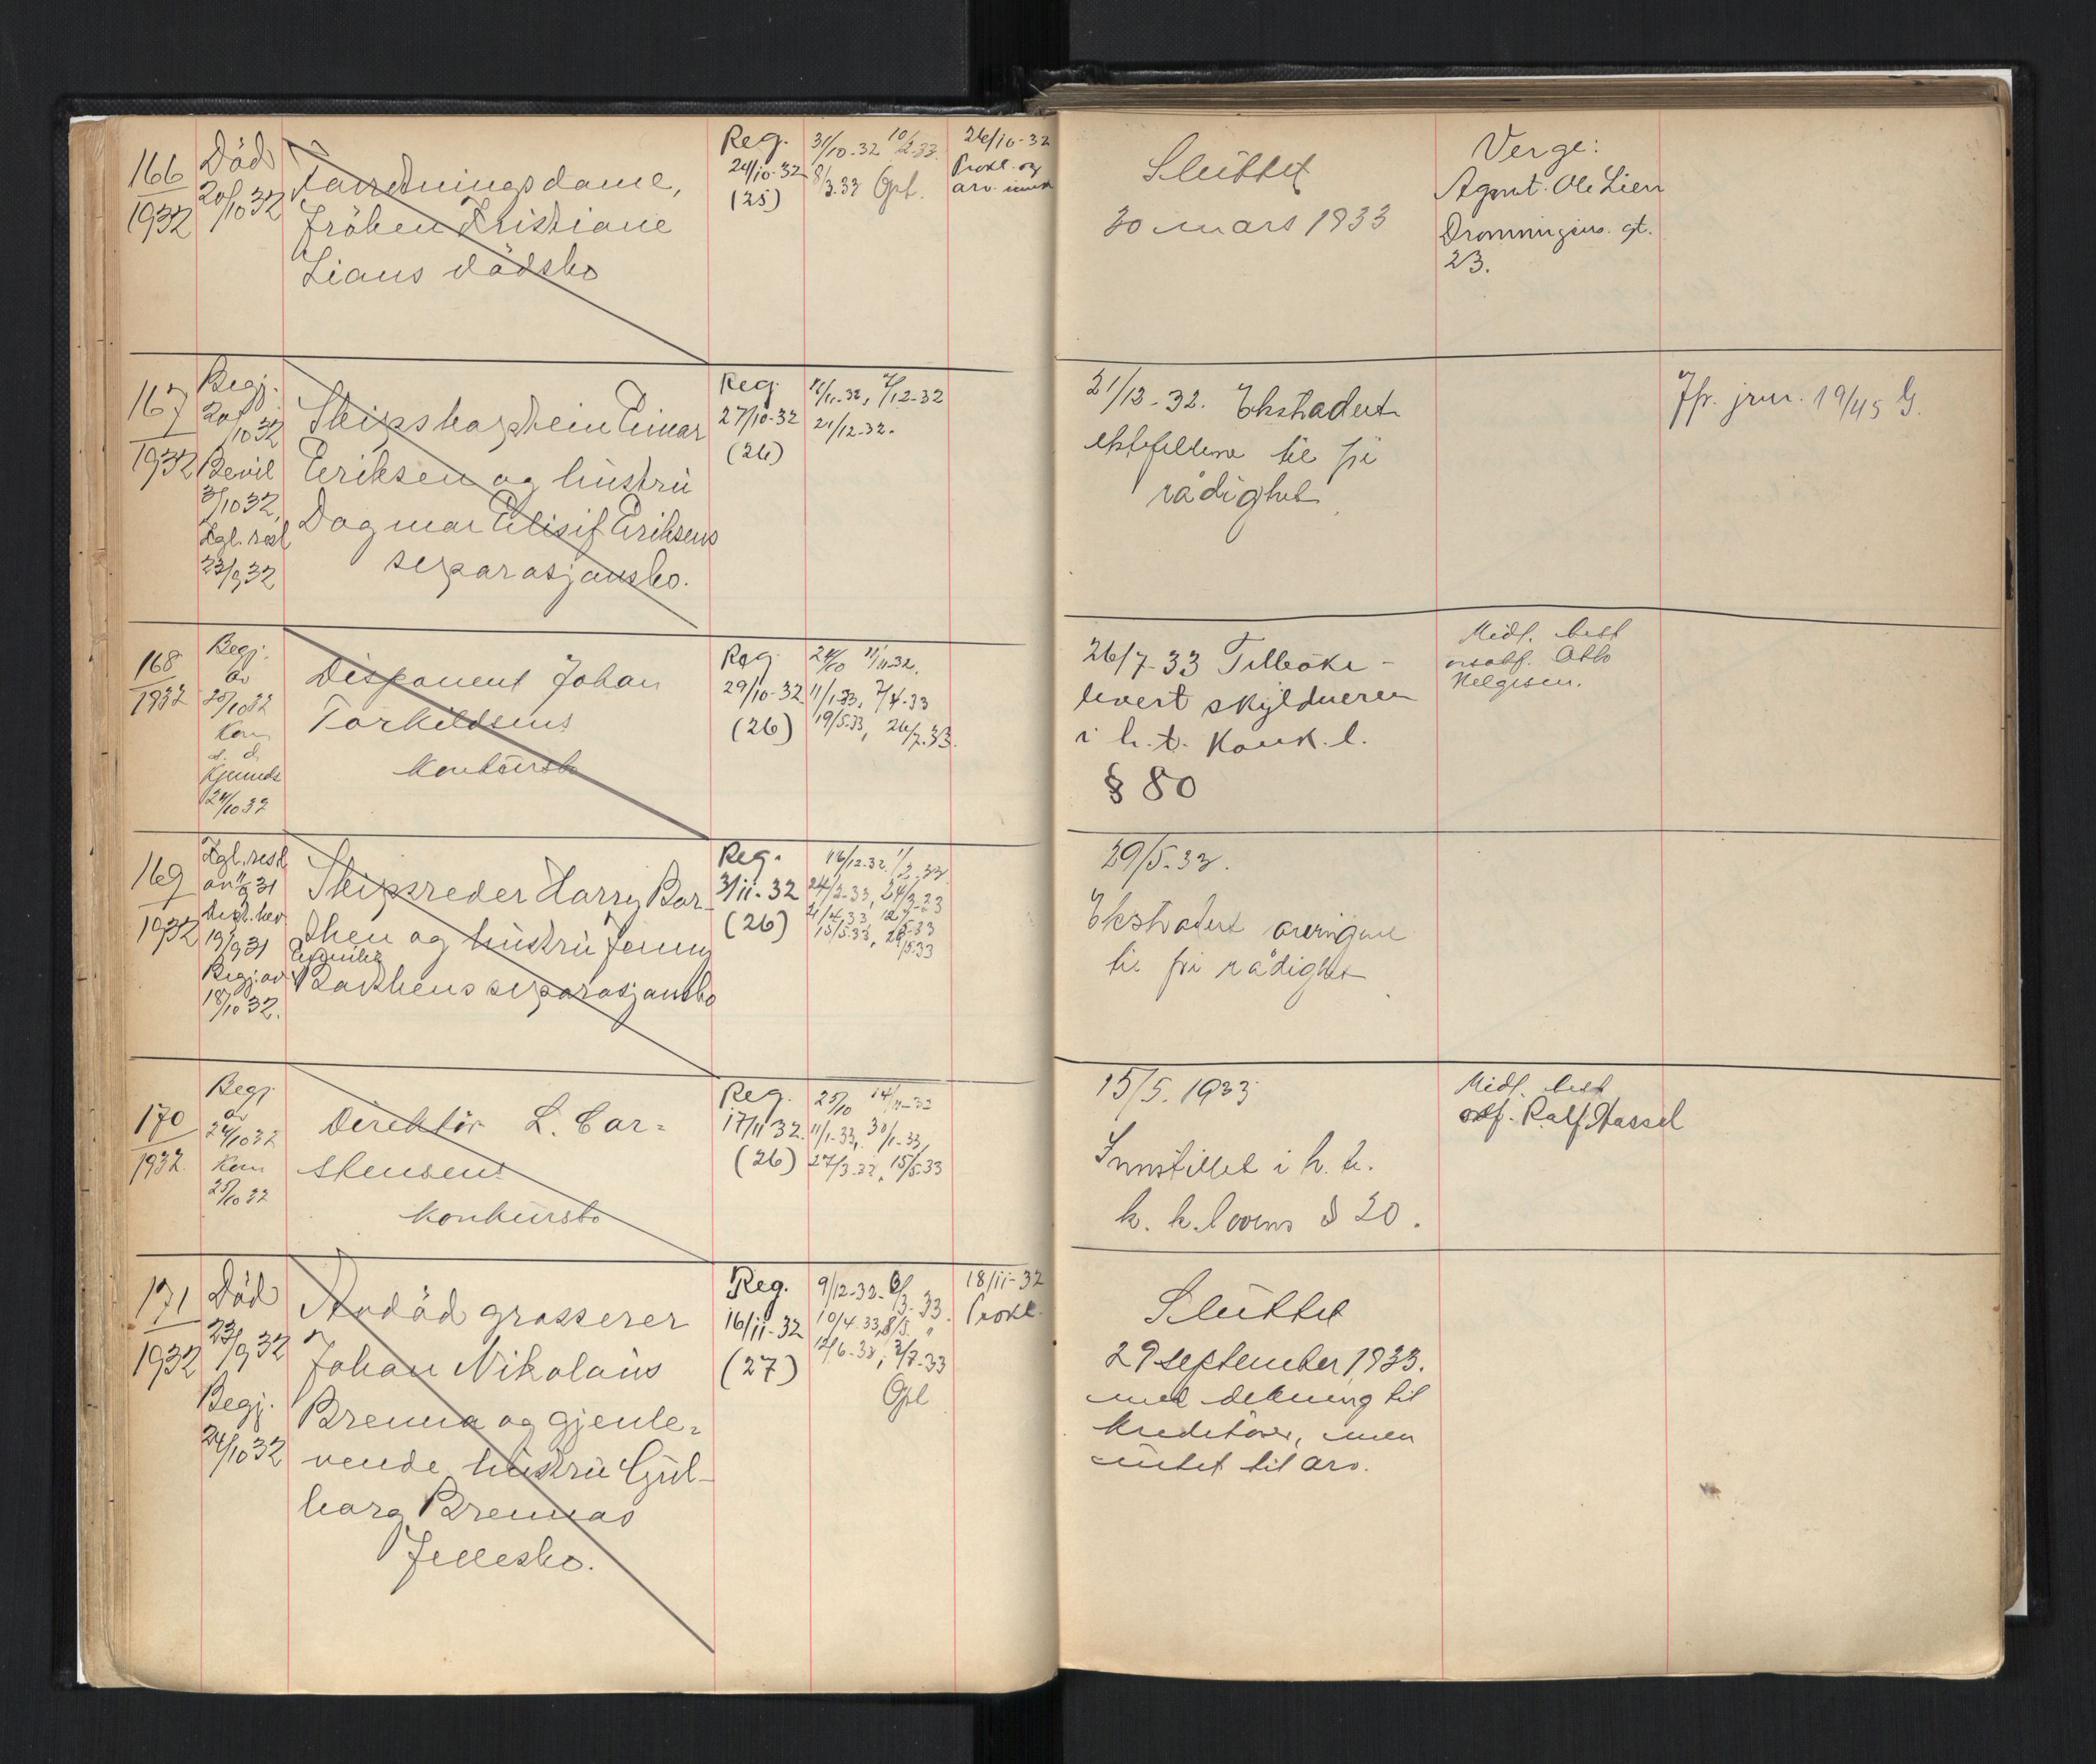 166
1932
Död
20/10 32
Forretningsdame,
Fröken Kristiane
Liens dödsbo
Reg.
24/10-32
(25)
31/10-32 10/2-33.
8/3.33 Gpl.
26/10-32
Prokl. og
arv. innk
Sluttet
30 mars 1933
Verge:
Agent. Ole Lien
Dronningens. gt.
23.
167
1932
Begj.
20/10 32
Bevil
3/10 32,
Kgl. resl
23/9 32
Skipskaptein Einar
Eriksen og hustru
Dagmar Elisif Eriksens
separasjonsbo.
Reg.
27/10-32
(26)
11/11-32, 7/12-32
21/12-32.
21/12-32. Ekstradert
ektefellene til fri
rådighet
Jfr. jrnr. 19/45 G.
168
1932
Begj.
av
25/10 32
Kon
d. d.
Kjennels
29/10 32
Disponent Johan
Torkildsens
konkursbo
Reg.
29/10-32
(26)
29/10 11/11-32.
11/1-33, 7/4-33
19/5-33, 26/7-33.
26/7-33 Tilbake-
levert skyldneren
i h.t. Konk.l.
§ 80
Midl. best
orsakf. Otto
Helgesen.
169
1932
Kgl. resl
av 11/9 31
Dept. bev
19/9 31
Begj. av
18/10 32.
Skipsreder Harry Bor-
then og hustru Jenny
Borthens separasjonsbo
Reg.
3/11-32
(26)
16/12-32 1/2-33
24/2-33, 24/3-33
21/4-33 12/5-33
15/5-33, 29/5-33
29/5-33.
Ekstradert arvingene
til fri rådighet
170
1932.
Begj.
av
24/10 32
Kon
25/10 32
Direktör L. Car=
stensens
konkursbo
Reg.
17/11 32.
(26)
25/10 14/11-32
11/1-33, 30/1-33,
27/3-33, 15/5-33
15/5. 1933
Innstillet i h. t.
k. k. lovens § 20.
Midl. best
osf. Ralf Hassel
171
1932
Död
23/9 32
Begj.
24/10 32
Avdöd grosserer
Johan Nikolaus
Brenna og gjenle=
vende hustru Gul-
borg Brennas
fellesbo.
Reg.
16/11-32
(27)
9/12-32-6/3-33.
10/4-33, 8/5. "
12/6-33, 3/7-33
Gpl
18/11-32
Prokl.
Sluttet
29 september 1933.
med dekning til
kreditorer, men
intet til arv.